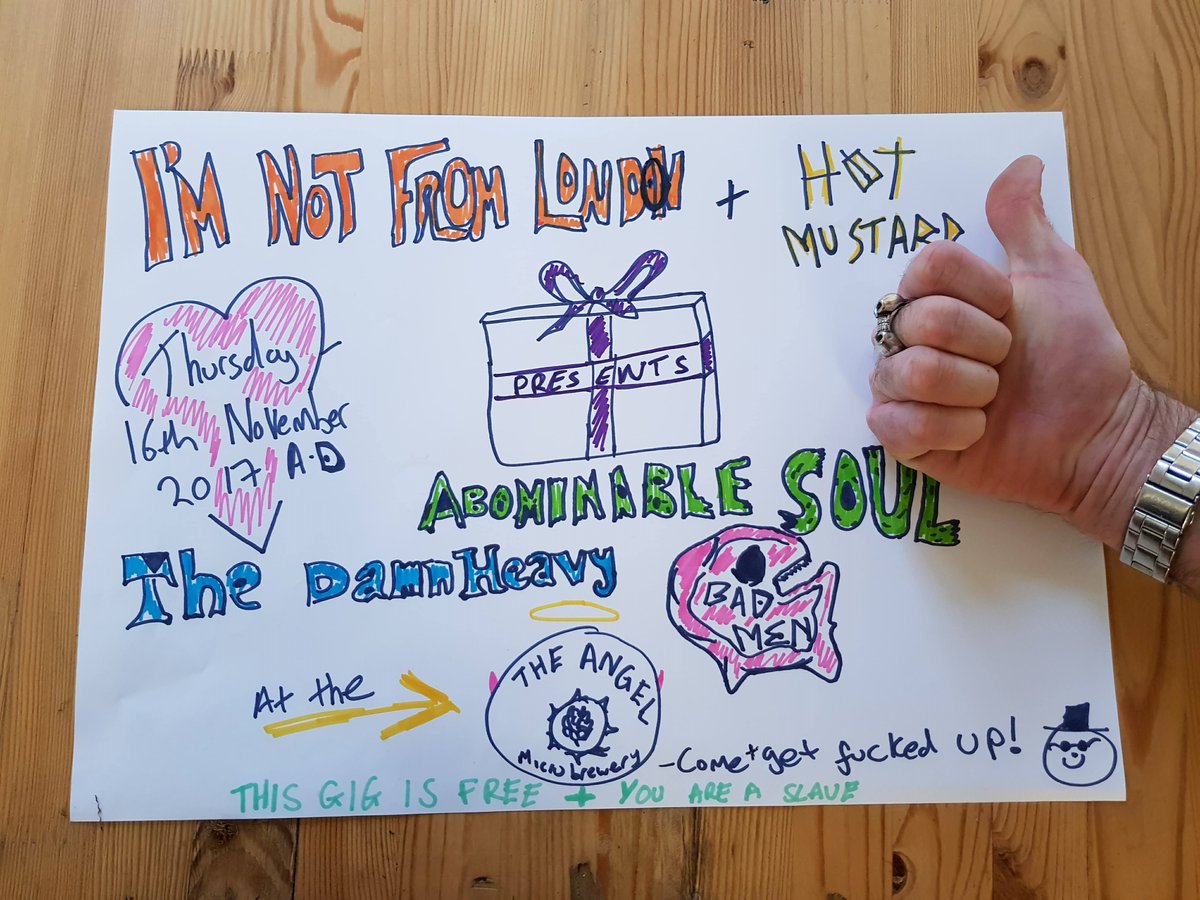 I'M NOT FROM LONDON + HOT
MUSTARD
Thursday
16th November
2017 A.D
PRESENTS
ABOMINABLE SOUL
The DamnHeavy
BAD
MEN
At the
THE ANGEL
Microbrewery
- Come + get fucked up!
THIS GIG IS FREE + YOU ARE A SLAVE